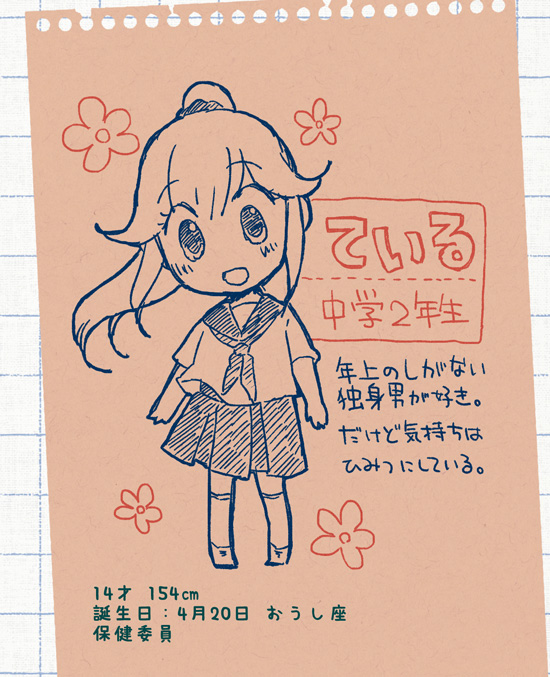 ている 
中学2年生
年上のしがない
独身男が好き。
だけど気持ちは
ひみつにしている。
14才 154cm
誕生日：4月20日 おうし座
保健委員